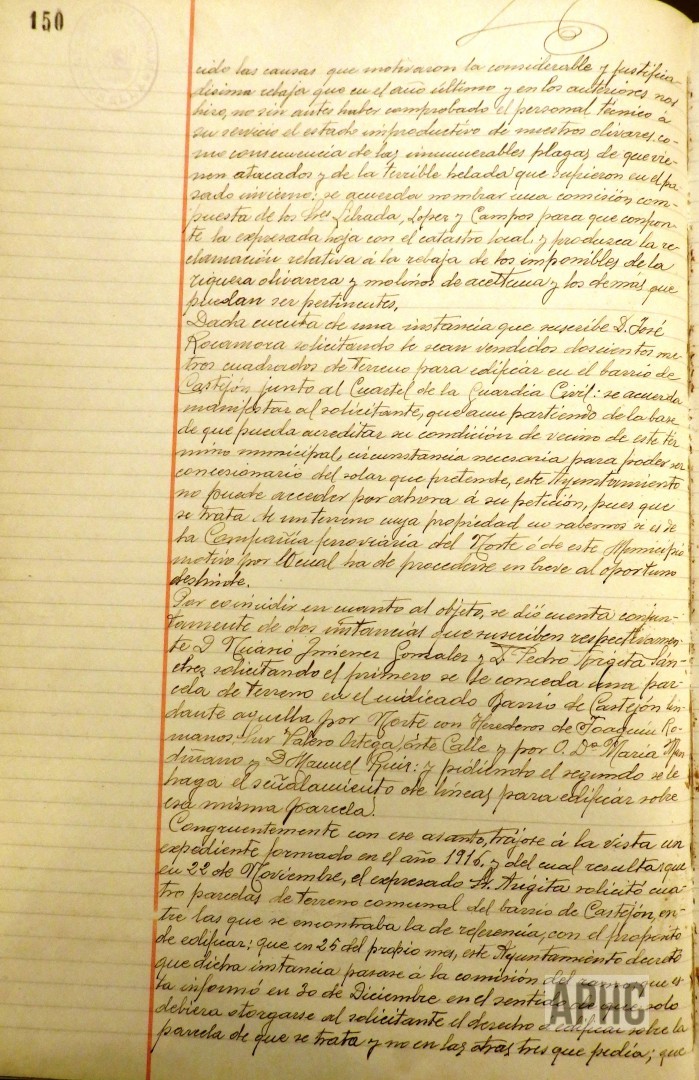 150
cido las causas que motivaron la considerable y justifica
disima rebaja que en el año último y en los anteriores nos
hizo, no sin antes haber comprobado el personal técnico á
su servicio el estado improductivo de nuestros olivares, co-
mo consecuencia de las innumerables plagas de que vie-
nen atacados y de la terrible helada que sufrieron en el pa-
sado invierno: se acuerda nombrar una comisión com-
puesta de los Sres Librada, López y Campos para que confron-
te la expresada hoja con el catastro local, y produzca la re-
clamación relativa á la rebaja de los imponibles de la
riqueza olivarera y molinos de aceituna y los demas que
puedan ser pertinentes.
Dada cuenta de una instancia que suscribe D. José
Rocamora solicitando le sean vendidos doscientos me-
tros cuadrados de terreno para edificar en el barrio de
Castejón junto al Cuartel de la Guardia Civil: se acuerda
manifestar al solicitante, que aun partiendo de la base
de que pueda acreditar su condición de vecino de este tér
mino municipal, circunstancia necesaria para poder ser
concesionario del solar que pretende, este Ayuntamiento
no puede acceder por ahora á su petición, pues que
se trata de un terreno cuya propiedad no sabemos si es de
la Compañía ferroviaria del Norte ó de este Municipio
motivo por lo cual ha de procederse en breve al oportuno
deslinde.
Por coincidir en cuanto al objeto, se dió cuenta conjun-
tamente de dos instancias que suscriben respectivamen-
te D Jimenez Gonzalez y D. Pedro Arigita Sán-
chez, solicitando el primero se le conceda una par-
cela de terreno en el indicado Barrio de Castejón lin-
dante aquella por Norte con Herederos de Joaquín Ro-
manos: Sur Valero Ortega, Este Calle y por O. Dª María
y D. Manuel Ruiz: y pidiendo el segundo se le
haga el señalamiento de líneas para edificar sobre
esa misma parcela.
Congruentemente con ese asunto, trájose á la vista un
expediente formado en el año 1916, y del cual resulta: que
en 22 de Noviembre, el expresado Sr. Arigita solicitó cua-
tro parcelas de terreno comunal del barrio de Castejón, en-
tre las que se encontraba la de referencia, con el propósito
de edificar; que en 25 del propio mes, este Ayuntamiento decretó
que dicha instancia pasase á la comisión del ramo, que és
ta informó en 30 de Diciembre en el sentido de que solo
debiera otorgarse al solicitante el derecho á edificar sobre la
parcela de que se trata y no en las otras tres que pedía; que